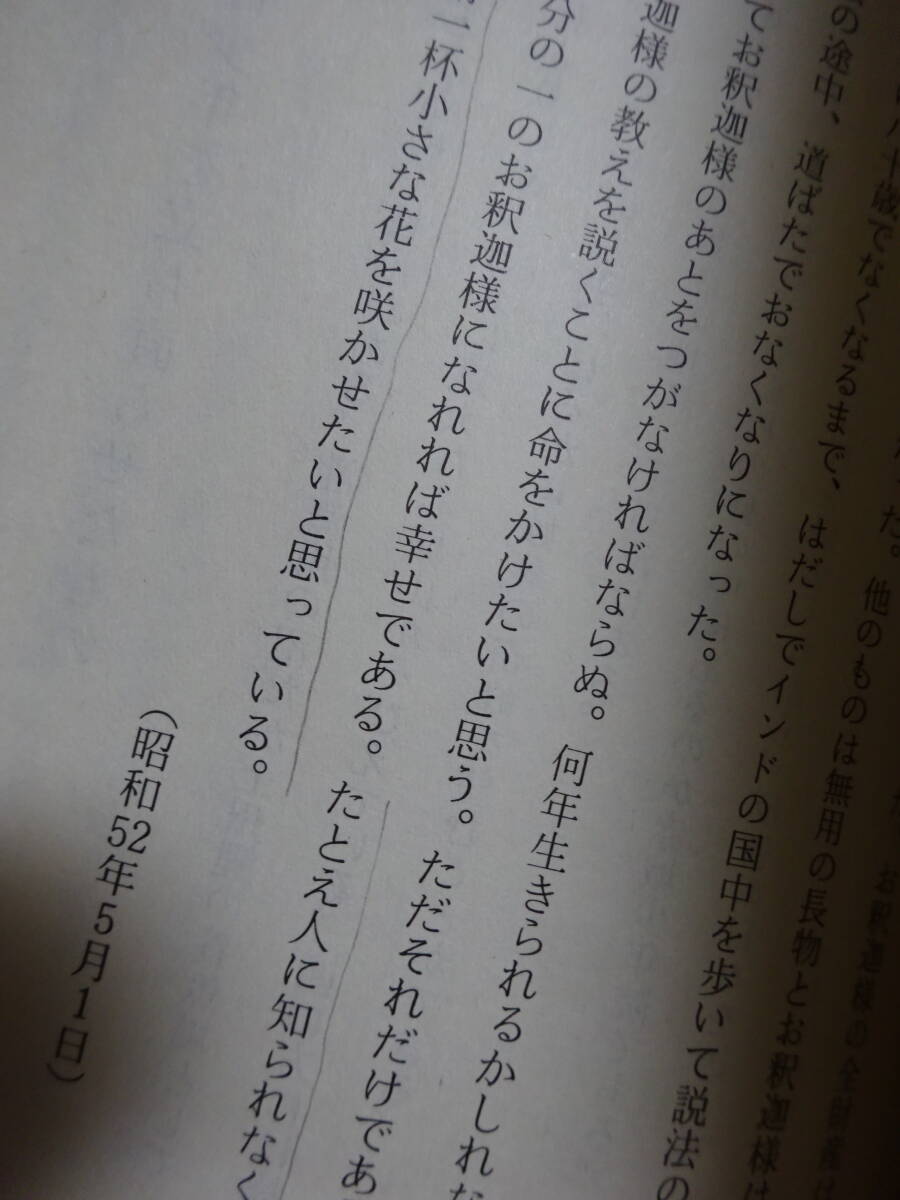 お釈迦様の全財産は
八十歳でなくなるまで、はだしでインドの国中を歩いて説法の
た。他のものは無用の長物とお釈迦様は
の途中、道ばたでおなくなりになった。
てお釈迦様のあとをつがなければならぬ。何年生きられるかしれな
迦様の教えを説くことに命をかけたいと思う。ただそれだけであ
分の一のお釈迦様になれれば幸せである。たとえ人に知られなく
一杯小さな花を咲かせたいと思っている。
（昭和52年5月1日）